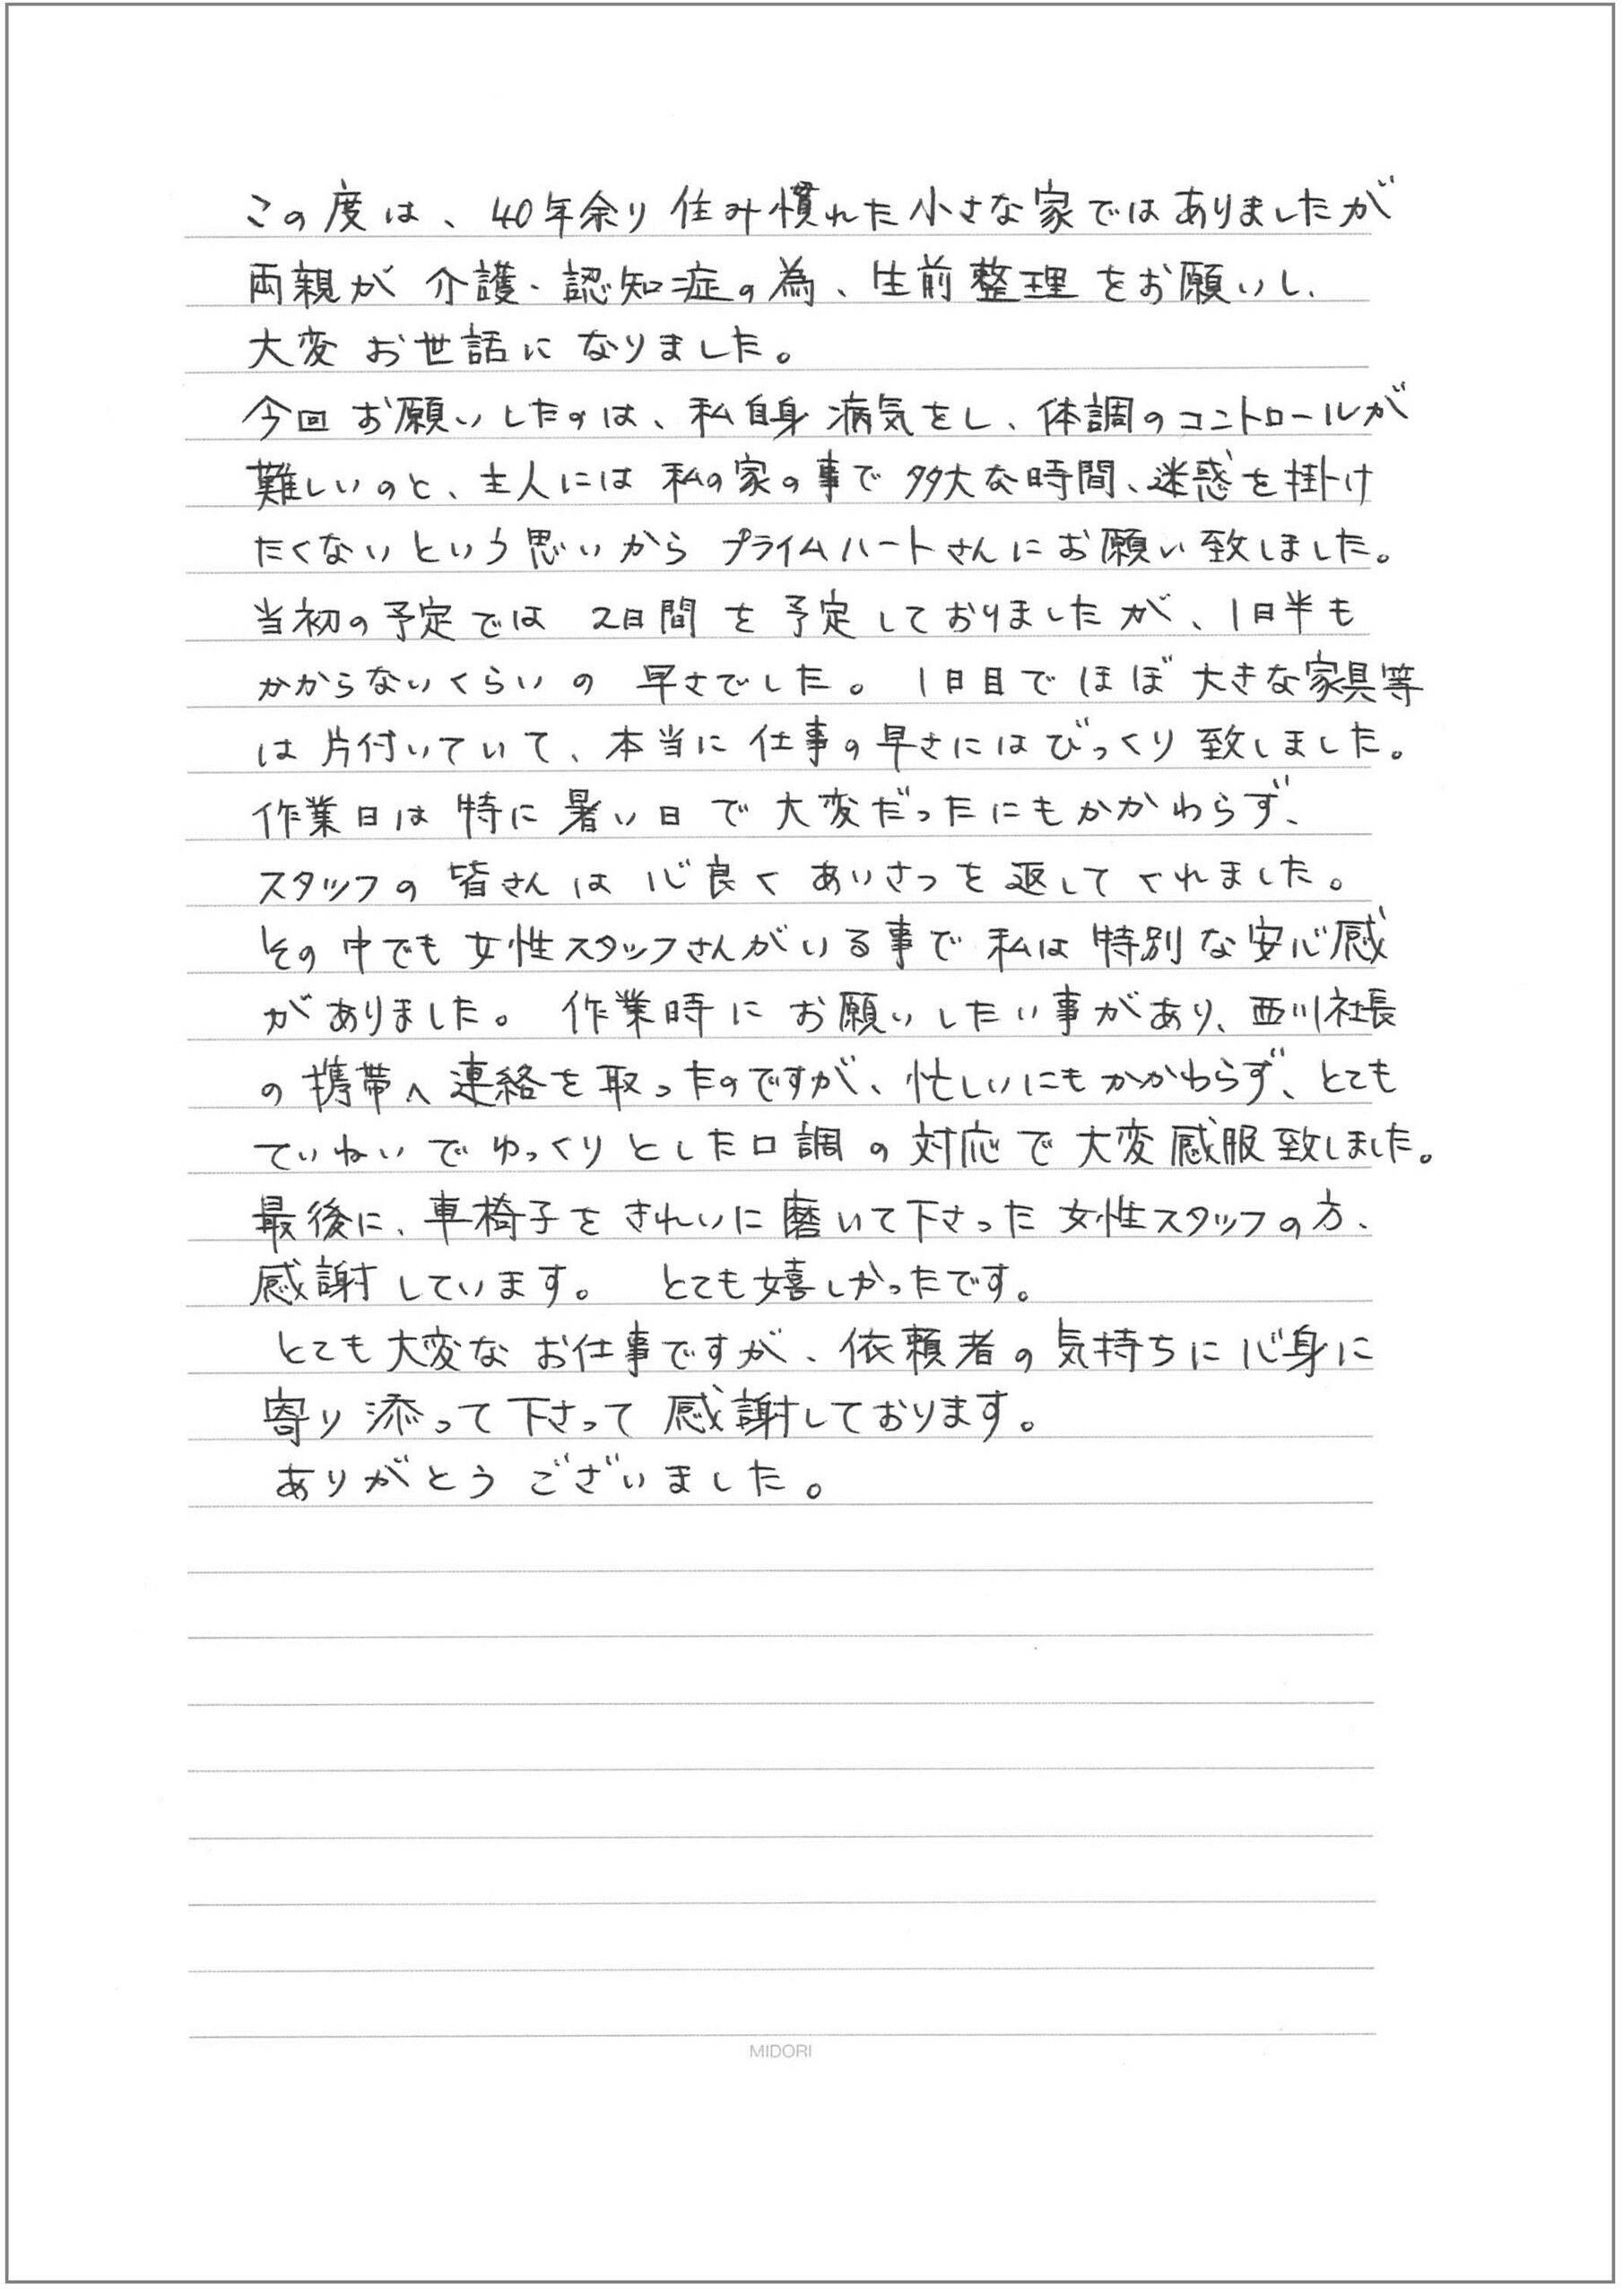 この度は、40年余り住み慣れた小さな家ではありましたが
両親が介護・認知症の為、生前整理をお願いし、
大変お世話になりました。
今回お願いしたのは、私自身病気をし、体調のコントロールが
難しいのと、主人には私の家の事で多大な時間、迷惑を掛け
たくないという思いからプライムハートさんにお願い致しました。
当初の予定では2日間を予定しておりましたが、1日半も
かからないくらいの早さでした。1日目でほぼ大きな家具等
は片付いていて、本当に仕事の早さにはびっくり致しました。
作業日は特に暑い日で大変だったにもかかわらず、
スタッフの皆さんは心良くあいさつを返してくれました。
その中でも女性スタッフさんがいる事で私は特別な安心感
がありました。作業時にお願いしたい事があり、西川社長
の携帯へ連絡を取ったのですが、忙しいにもかかわらず、とても
ていねいでゆっくりとした口調の対応で大変感服致しました。
最後に、車椅子をきれいに磨いて下さった女性スタッフの方、
感謝しています。 とても嬉しかったです。
とても大変なお仕事ですが、依頼者の気持ちに心身に
寄り添って下さって感謝しております。
ありがとうございました。
MIDORI